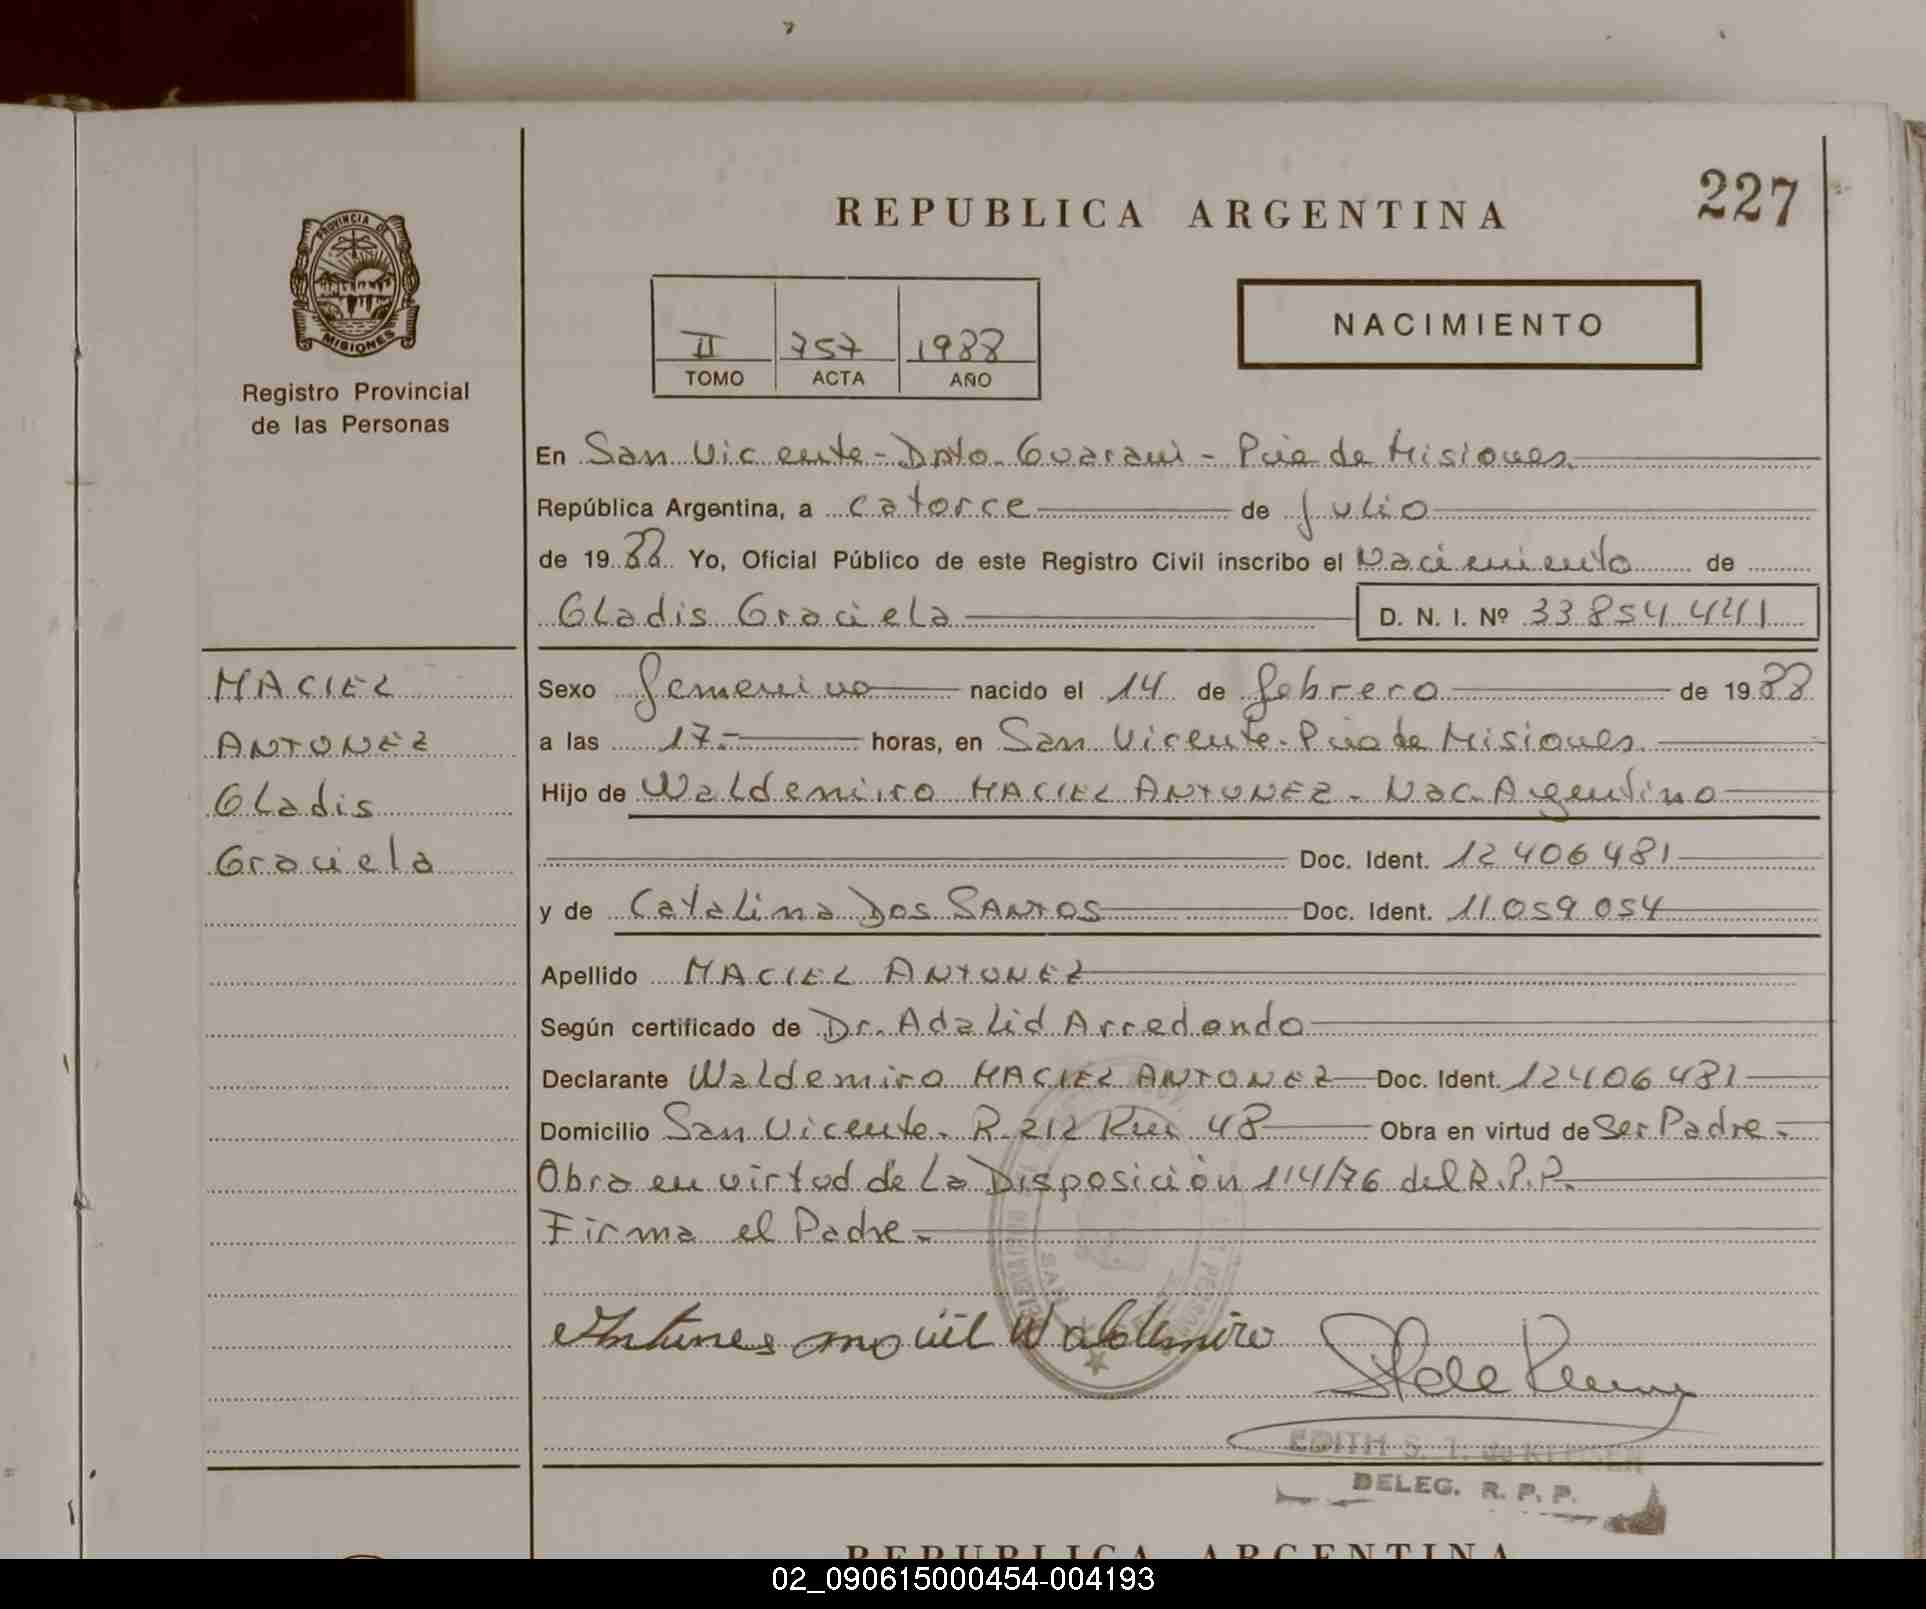 227
REPUBLICA ARGENTINA
PROVINCIA DE
MISIONES
Registro Provincial
de las Personas
II 757 1988
TOMO ACTA AÑO
NACIMIENTO
En San Vicente - Dpto. Guarani - Pcia de Misiones.
República Argentina, a catorce de julio
de 1988 Yo, Oficial Público de este Registro Civil inscribo el Nacimiento de
Gladis Graciela D. N. I. Nº 33 854 441
MACIEL
ANTUNEZ
Gladis
Graciela
Sexo femenino nacido el 14 de febrero de 1988
a las 17.- horas, en San Vicente. Pcia de Misiones
Hijo de Waldemiro MACIEL ANTUNEZ - Nac. Argentino
Doc. Ident. 12 406 481
y de Catalina Dos SANTOS Doc. Ident. 11 059 054
Apellido MACIEL ANTUNEZ
Según certificado de Dr. Adalid Arredondo
Declarante Waldemiro MACIEL ANTUNEZ Doc. Ident. 12406 481
Domicilio San Vicente. R. 212 Km 48 Obra en virtud de Ser Padre.
Obra en virtud de la Disposición 114/76 del R.P.P.
Firma el Padre.
Antunes maciel Waldemiro
EDITH S. T. de
DELEG. R. P. P.
REPUBLICA ARGENTINA
02_090615000454-004193